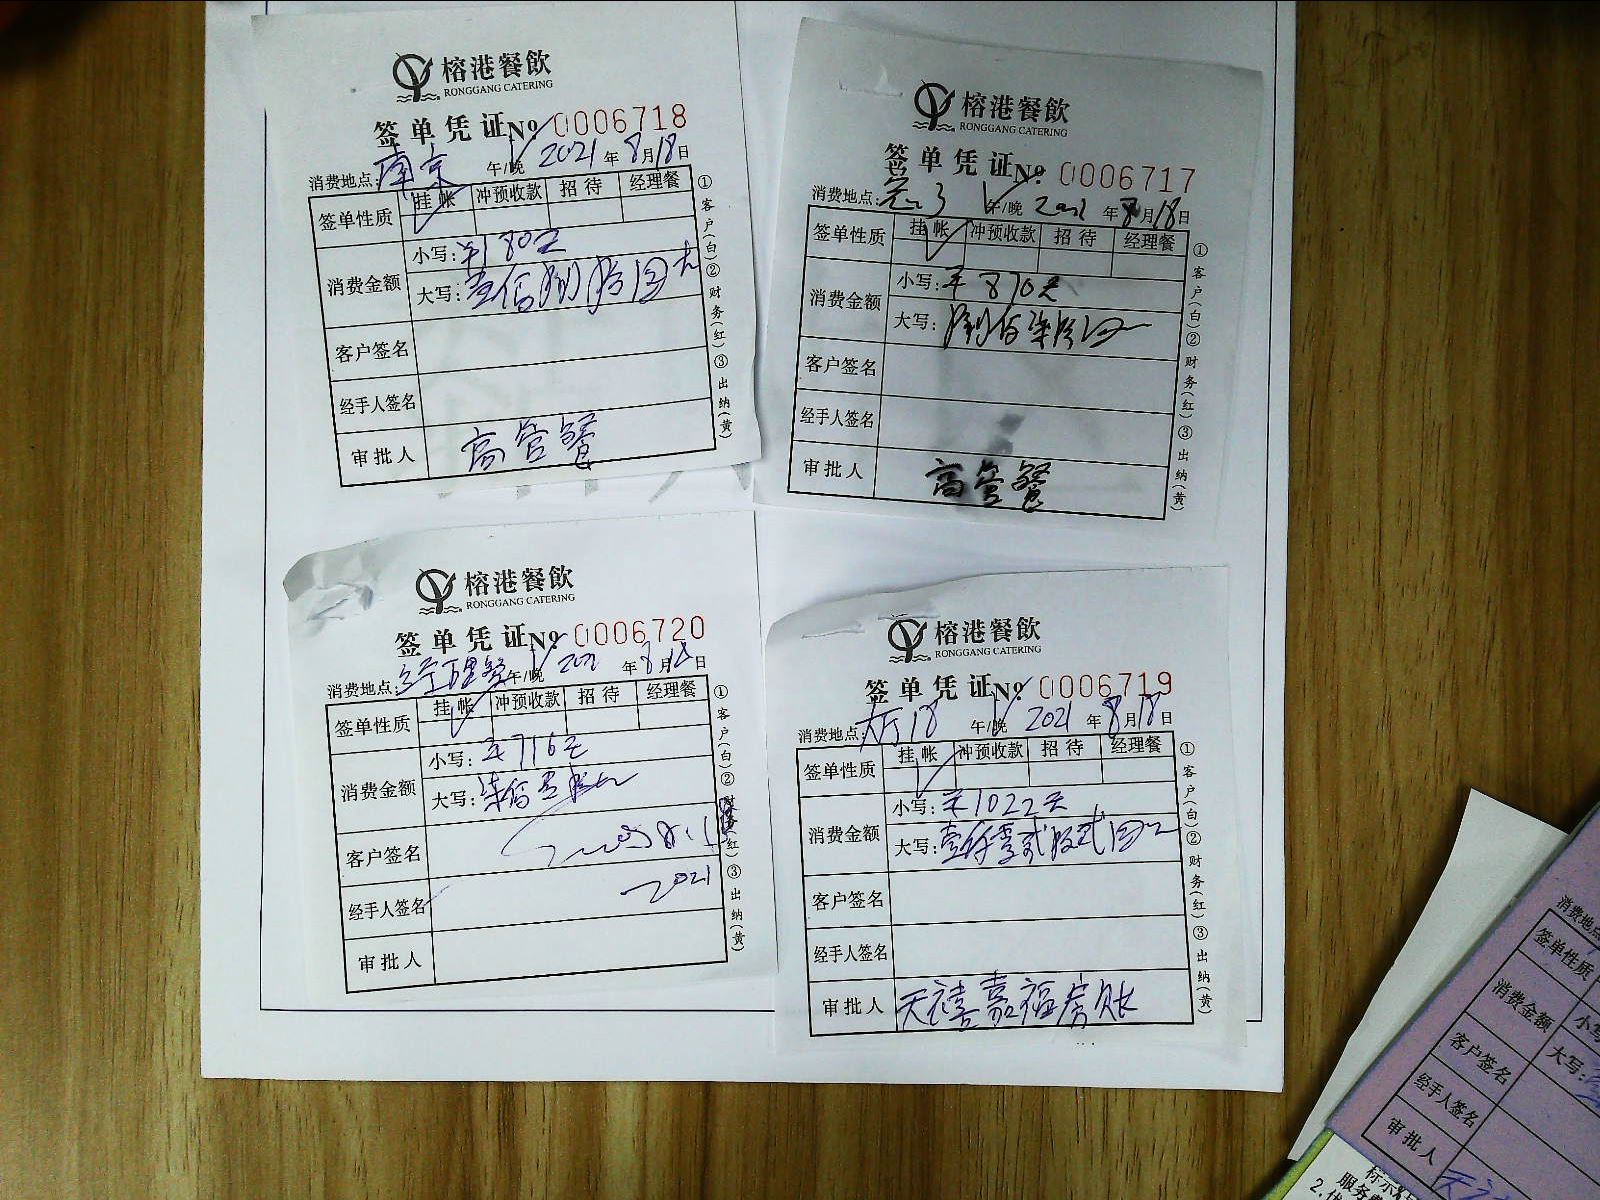 榕港餐飲
RONGGANG CATERING
签单凭证 No 0006718
消费地点:南京 午/晚 2021年8月18日
签单性质 挂帐 冲预收款 招待 经理餐
消费金额 小写:¥180元
大写:壹佰捌拾圆
客户签名
经手人签名
审批人 高管餐
①客户(白)②财务(红)③出纳(黄)
榕港餐飲
RONGGANG CATERING
签单凭证 No 0006717
消费地点: 午/晚 2021年8月18日
签单性质 挂帐 冲预收款 招待 经理餐
消费金额 小写:¥870元
大写:捌佰柒拾圆
客户签名
经手人签名
审批人 高管餐
①客户(白)②财务(红)③出纳(黄)
榕港餐飲
RONGGANG CATERING
签单凭证 No 0006720
消费地点:经理餐 午/晚 202 年8月18日
签单性质 挂帐 冲预收款 招待 经理餐
消费金额 小写:¥716元
大写:柒佰壹拾
客户签名
经手人签名 2021
审批人
①客户(白)②财务(红)③出纳(黄)
榕港餐飲
RONGGANG CATERING
签单凭证 No 0006719
消费地点:大厅18 午/晚 2021年8月18日
签单性质 挂帐 冲预收款 招待 经理餐
消费金额 小写:¥1022元
大写:壹仟零贰拾贰圆
客户签名
经手人签名
审批人 天禧嘉福房账
①客户(白)②财务(红)③出纳(黄)
消费地点
签单性质
消费金额 小写
大写:
客户签名
经手人签名
审批人
标示
服务费
2.